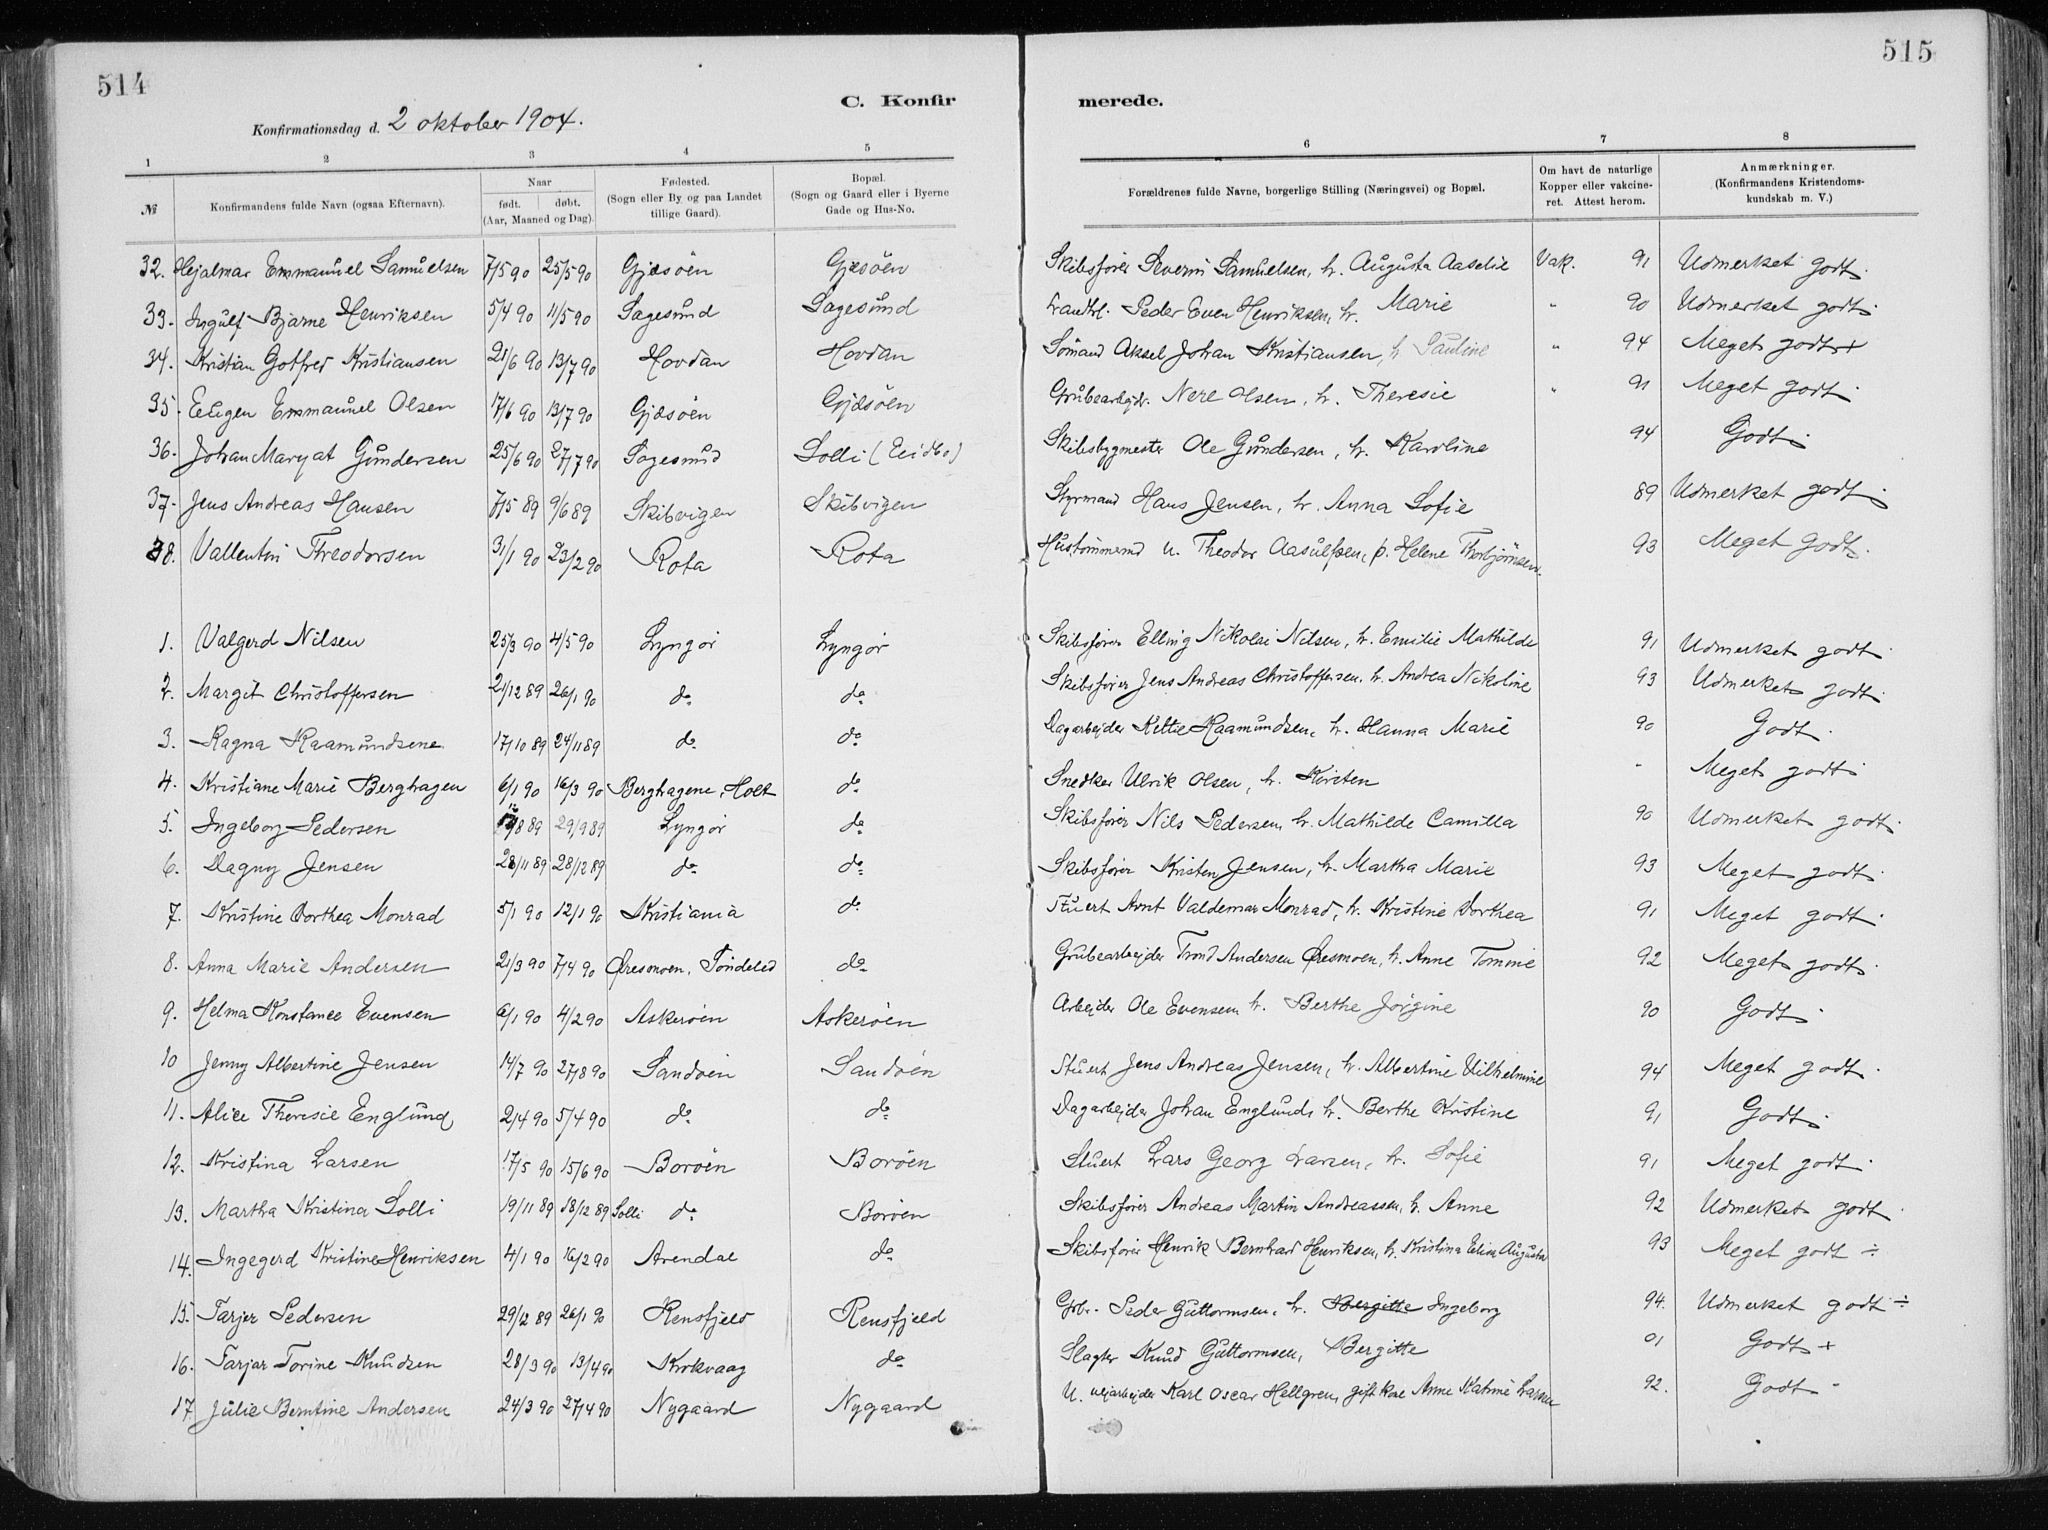 514
515
C. Konfir
merede.
Konfirmationsdag d. 2 oktober 1904.
1 2 3 4 5 6 7 8
№ Konfirmandens fulde Navn (ogsaa Efternavn). Naar født. døbt. (Aar, Maaned og Dag). Fødested. (Sogn eller By og paa Landet tillige Gaard). Bopæl. (Sogn og Gaard eller i Byerne Gade og Hus-No. Forældrenes fulde Navne, borgerlige Stilling (Næringsvei) og Bopæl. Om havt de naturlige Kopper eller vakcineret. Attest herom. Anmærkninger. (Konfirmandens Kristendomskundskab m. V.)
32. Hejalmar Emmanuel Samuelsen 7/5 90 25/5 90 Gjæsöen Gjæsöen Skibsfører Severin Samuelsen, h. Augusta Aaselie Vak. 91 Udmerket godt.
33. Ingulf Bjarne Henriksen 5/4 90 11/5 90 Sagesund Sagesund Landhl. Peder Even Henriksen, h. Marie " 90 Udmerket godt.
34. Kristian Gotfred Kristiansen 21/6 90 13/7 90 Hovdan Hovdan Sömand Aksel Johan Kristiansen, h. Pauline " 94 Meget godt +
35. Eeugen Emmanuel Olsen 17/6 90 13/7 90 Gjæsöen Gjæsöen Grubearbejdr. Nere Olsen, h. Theresie " 91 Meget godt.
36. Johan Maryat Gundersen 25/6 90 27/7 90 Sagesund Solli (Eidbo) Skibsbygmester Ole Gundersen, h. Karoline 94 Godt.
37. Jens Andreas Hansen 7/5 89 9/6 89 Skibvigen Skibvigen Styrmand Hans Jensen, h. Anna Sofie 89 Udmerket godt.
38. Vallentin Threodorsen 31/1 90 23/2 90 Rota Rota Hustømmermd u. Theodor Aasulfsen, p. Helene Thorbjörnsen. 93 Meget godt.
1. Valgerd Nilsen 25/3 90 4/5 90 Lyngör Lyngör Skibsfører Elling Nikolai Nilsen, h. Emilie Mathilde 91 Udmerket godt.
2. Margit Christoffersen 21/12 89 26/1 90 do do Skibsfører Jens Andreas Christoffersen, h. Andrea Nikoline 93 Udmerket godt.
3. Ragna Raamundsene 17/10 89 24/11 89 do do Dagarbejder Keltie Haamundsen, h. Hanna Marie 90 Godt.
4. Kristiane Marie Berghagen 6/1 90 16/3 90 Berghagene, Holt do Snedker Ulrik Olsen, h. Kirsten - Meget godt.
5. Ingeborg Pedersen /8 89 29/9 89 Lyngör do Skibsfører Nils Pedersen, h. Mathilde Camilla 90 Udmerket godt.
6. Dagny Jensen 28/11 89 28/12 89 do do Skibsfører Kristen Jensen, h. Martha Marie 93 Meget godt.
7. Kristine Dorthea Monrad 5/1 90 12/1 90 Kristiania do Stuert Arnt Valdemar Monrad, h. Kristine Dorthea 91 Meget godt.
8. Anna Marie Andersen 21/3 90 7/4 90 Øresmoen, Söndeled do Grubearbejder Trond Andersen Øresmoen, h. Anne Tomine 92 Meget godt.
9. Helma Konstance Evensen 6/1 90 4/2 90 Askeröen Askeröen Arbejder Ole Evensen, h. Berthe Jörgine 90 Godt.
10 Jenny Albertine Jensen 14/7 90 27/8 90 Sandöen Sandöen Stuert Jens Andreas Jensen, h. Albertine Vilhelmine 94 Meget godt.
11. Alice Theresie Englund 2/4 90 5/4 90 do do Dagarbejder Johan Englund, h. Berthe Kristine 91 Godt.
12. Kristina Larsen 17/5 90 15/6 90 Boröen Boröen Stuert Lars Georg Larsen, h. Sofie 91 Meget godt.
13. Martha Kristina Solli 19/11 89 18/12 89 Solli do Boröen Skibsfører Andreas Martin Andreassen, h. Anne 92 Udmerket godt.
14. Ingegerd Kristine Henriksen 4/1 90 16/2 90 Arendal do Skibsfører Henrik Bernhard Henriksen, h. Kristina Elise Augusta 93 Meget godt ÷
15. Tarjer Pedersen 29/12 89 26/1 90 Rensfjeld Rensfjeld Gbr. Peder Guttormsen, h. Bergitte Ingeborg 94. Udmerket godt ÷
16. Tarjar Torine Knudsen 28/3 90 13/4 90 Kirkvaag do Slagter Knud Guttormsen, Bergitte 01 Godt +
17 Julie Berntine Andersen 24/3 90 27/4 90 Nygaard Nygaard U. vejarbejder Karl Oscar Hellgren, gift kone Anne Katrine Larsen 92. Godt -